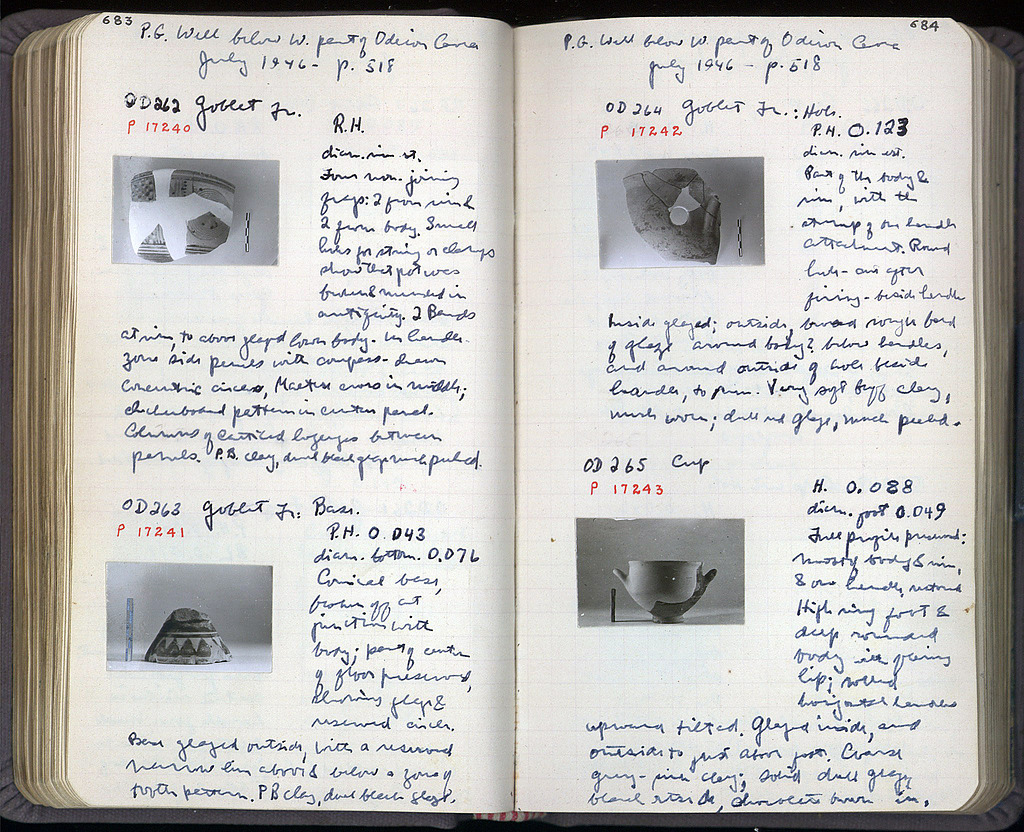 683
P.G. Well below W. part of Odeion Cavea
July 1946 - p. 518
OD262 Goblet Fr.
P 17240
R.H.
diam. rim est.
Four non-joining
frags: 2 from rim &
2 from body. Small
holes for string or clamps
show that pot was
broken & mended in
antiquity. 2 Bands
at rim, to above glazed lower body. In handle
zone side panels with compass-drawn
concentric circles, Maltese cross in middle;
checkerboard pattern in center panel.
Columns of latticed lozenges between
panels. P.B. clay, dull black glaze much peeled.
OD263 Goblet Fr: Base.
P 17241
P.H. 0.043
diam. bottom. 0.076
Conical base,
broken off at
junction with
body; part of center
of floor preserved,
showing glaze &
reserved circle.
Base glazed outside, with a reserved
narrow line above & below a zone of
tooth pattern. P.B. clay, dull black glaze.
684
P.G. Well below W. part of Odeion Cavea
July 1946 - p. 518
OD264 Goblet Fr.: Hole.
P 17242
P.H. 0.123
diam. rim est.
Part of the body &
rim, with the
stump of one handle
attachment. Round
hole - cut after
firing - beside handle
Inside glazed; outside, broad rough band
of glaze around body? below handles,
and around outside of hole beside
handle, to rim. Very soft buff clay,
much worn; dull red glaze, much peeled.
OD265 Cup
P 17243
H. 0.088
diam. foot 0.049
Full profile preserved:
most of body & rim,
& one handle, restored
High ring foot &
deep rounded
body with flaring
lip; rolled
horizontal handles
upward tilted. Glazed inside, and
outside to just above foot. Coarse
grey-pink clay; solid dull glaze,
black outside, chocolate brown in.